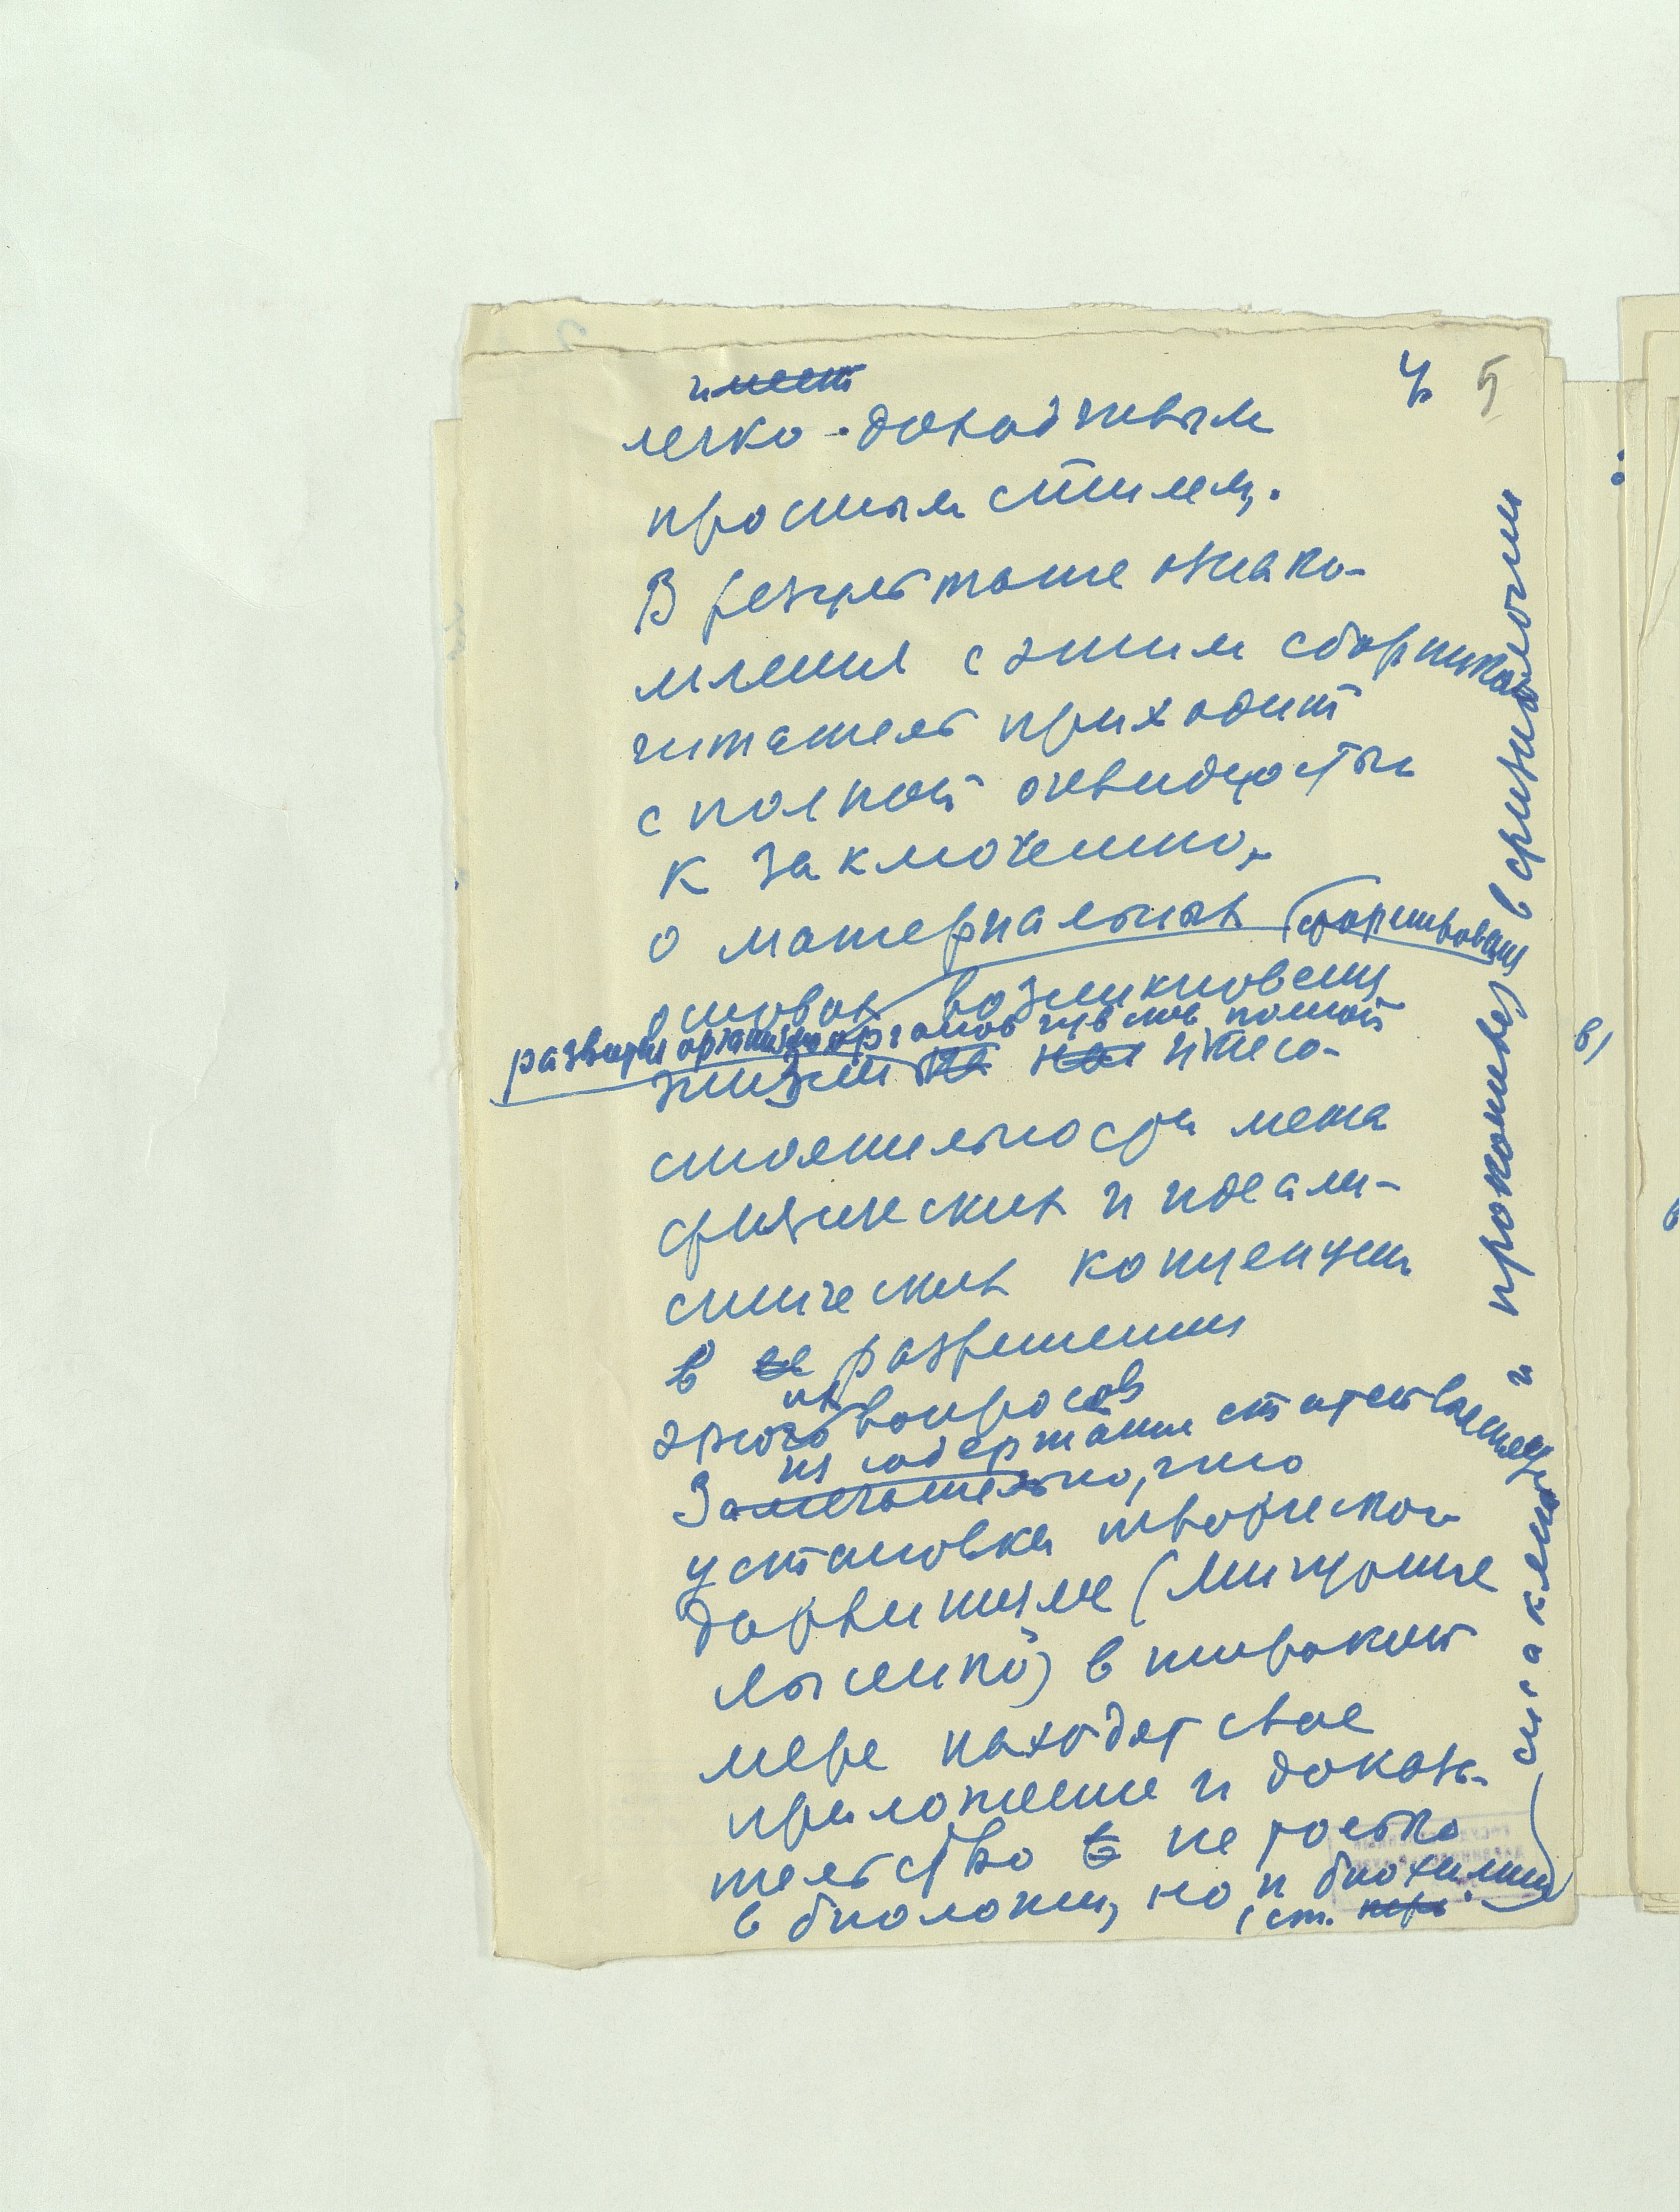 4 5
имеет
легко-доходчивым
простым стилем.
В результате ознако-
мления с этим сборником
читатель приходит
с полной очевидностью
к заключению,
о материальных
основах возникновения
развития организмов органов чувств полной
жизни и несо-
стоятельности мета
физических и идеали-
стических концепций
в разрешении
этих вопросов
из содержания статей
Замечательно, что
установка творческого
дарвинизма (Мичурина
Лысенко) в широкой
мере находят свое
приложение и доказа-
тельство не только
в биологии, но и биохимии
(ст.
и проконине) в физиологии